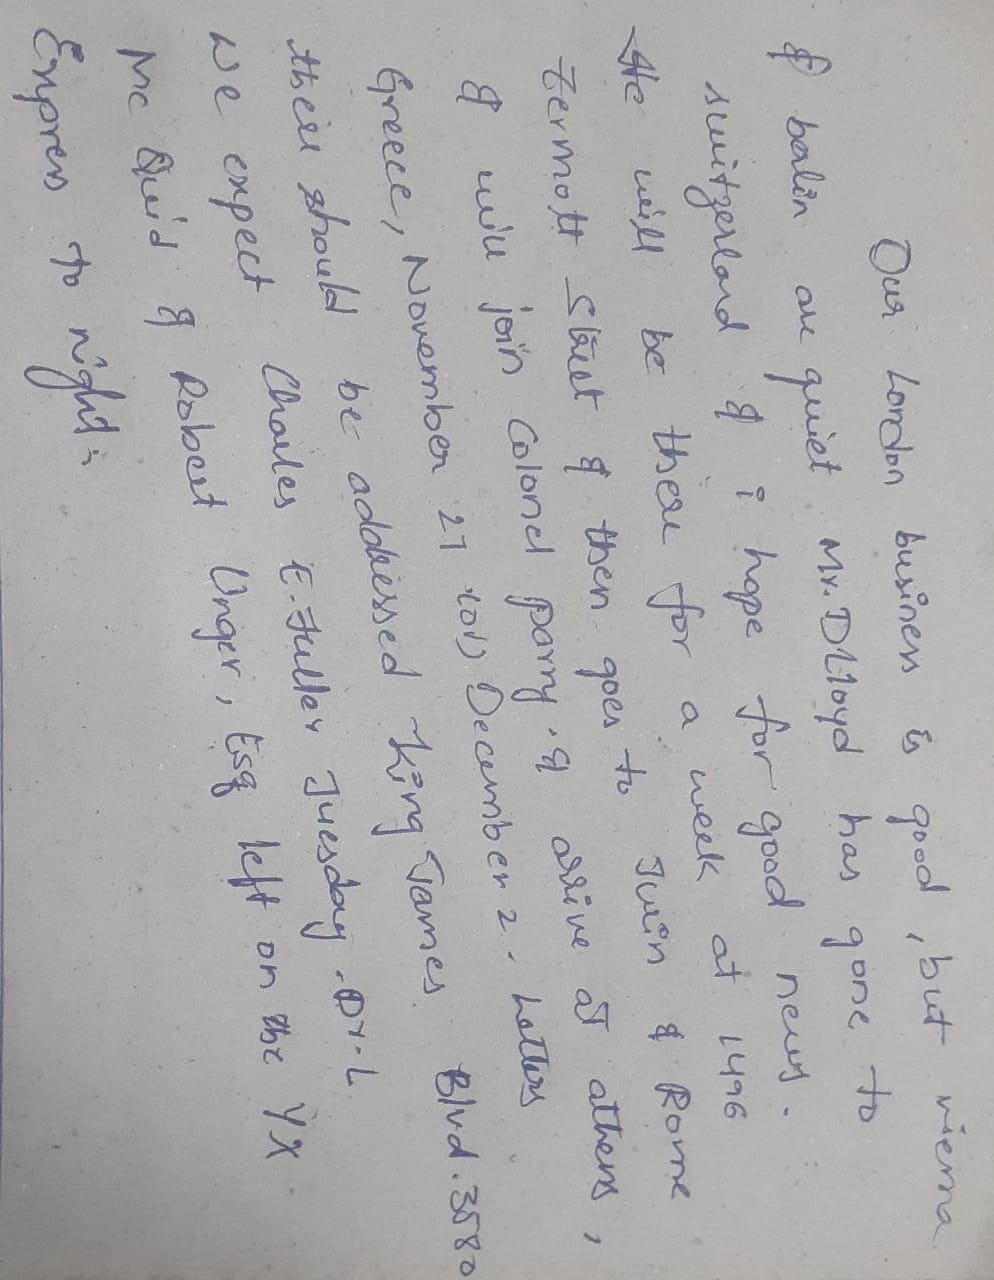 Our London business is good, but vienna
& berlin are quiet Mr. D Lloyd has gone to
switzerland & i hope for good news.
He will be there for a week at 1496
Zermott Street & then goes to Turin & Rome
& will join Colonel parry. & arrive at athens,
Greece, November 27 (or) December 2. Letters
there should be addressed King James Blvd. 3580
We expect Charles E. Fuller Tuesday. Dr. L
Mc Quid & Robert Unger, Esq left on the YX
Express to night.